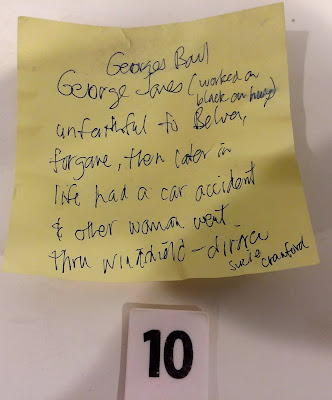 Georges Bowl
George Jones (worked on
black on
unfaithful to Belva,
forgave, then later in
life had a car accident
& other woman went
thru windshield - divorce
Susie Cranford
10